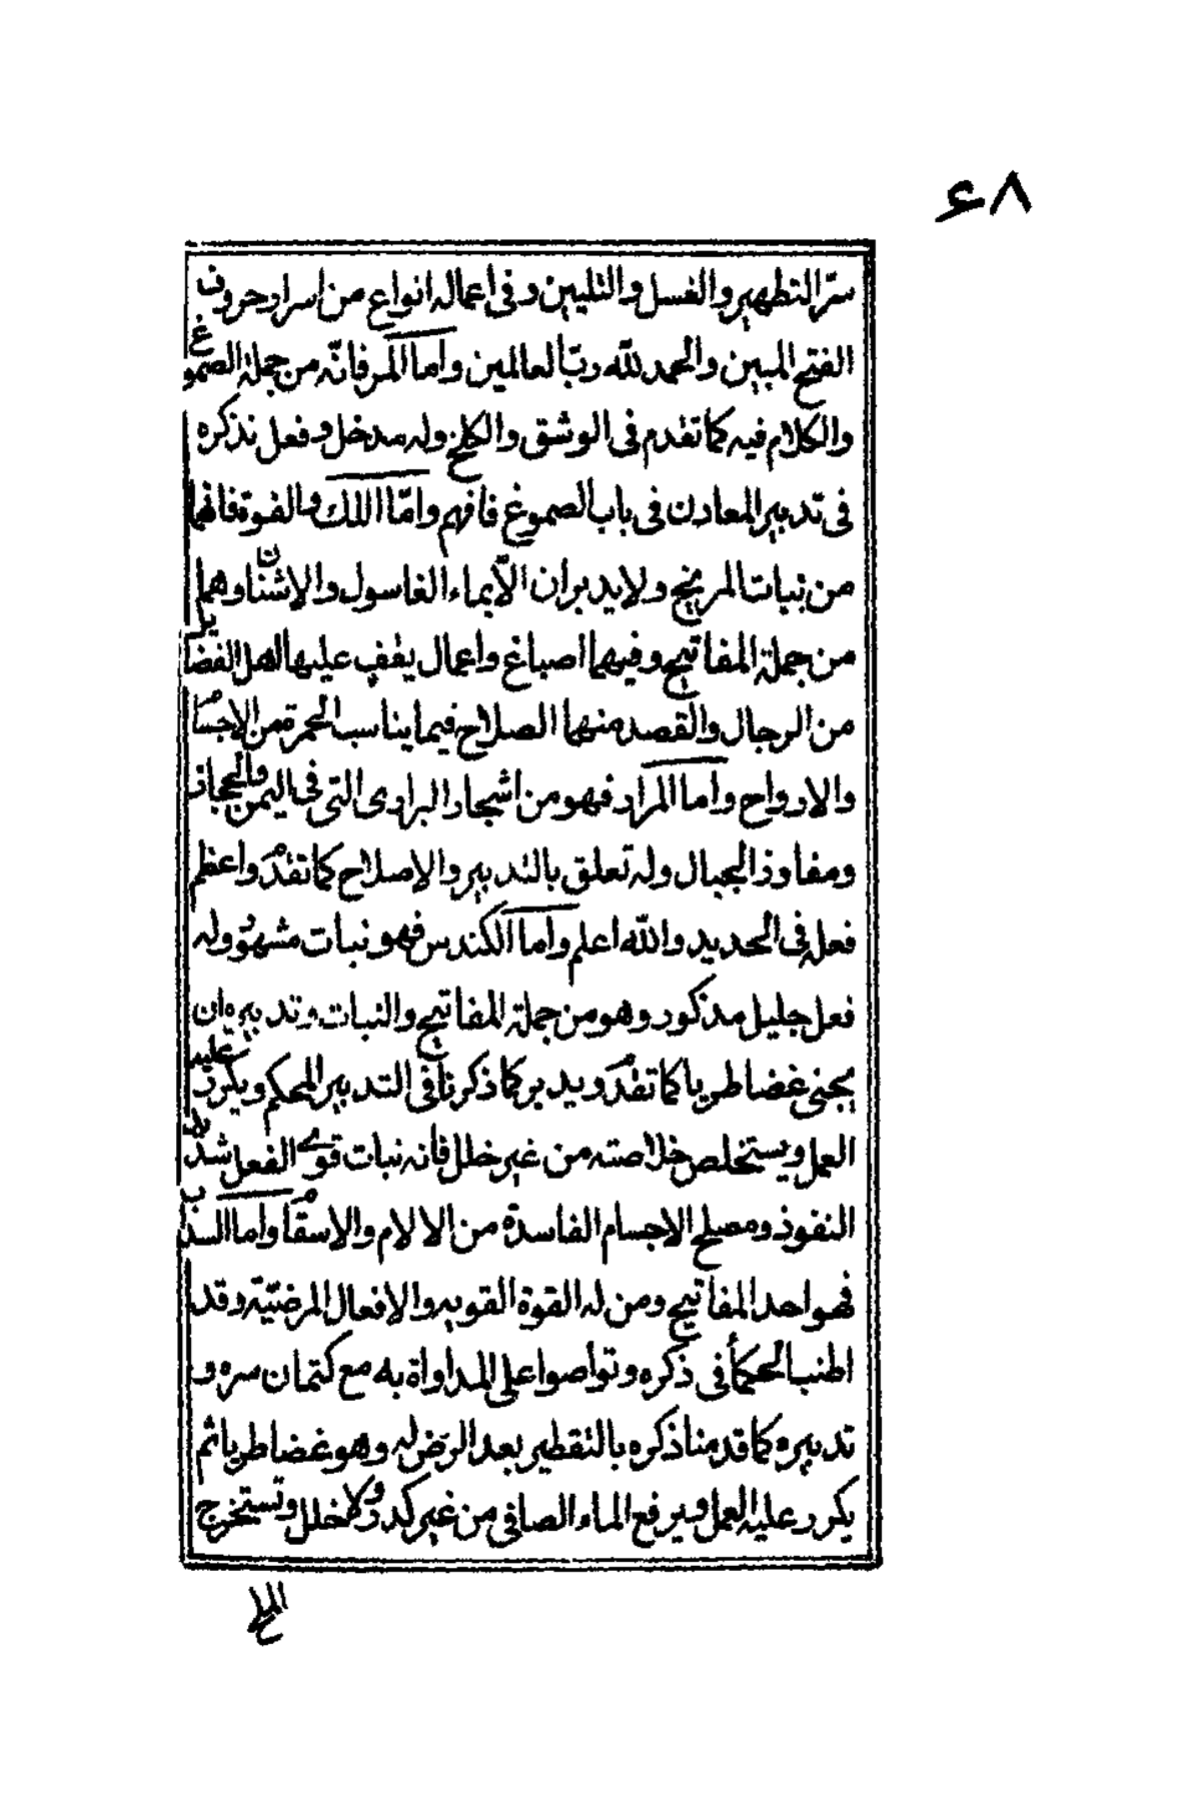 ٦٨
سرّ التطهير والغسل والتليين وفى اعماله انواع من اسرار حروف
الفتح المبين والحمد لله ربّ العالمين واما المر فانّه من جملة الصموغ
والكلام فيه كما تقدم فى الوشق والكلخ وله مدخل وفعل نذكره
فى تدبير المعادن فى باب الصموغ فافهم وامّا اللك والفوة فانهما
من نبات المريخ ولا يدبران الّا بماء الغاسول والاشنان وهما
من جملة المفاتيح وفيهما اصباغ واعمال يقف عليها اهل الفضايل
من الرجال والقصد منهما الصلاح فيما يناسب الحمرة من الاجسام
والارواح واما المرار فهو من اشجار البرارى التى فى اليمن والحجاز
ومفاوز الجبال وله تعلق بالتدبير والاصلاح كما تقدّم واعظم
فعله فى الحديد والله اعلم واما الكندس فهو نبات مشهور وله
فعل جليل مذكور وهو من جملة المفاتيح والنبات وتدبيره ان
يجنى غضا طريا كما تقدّم ويدبر كما ذكرنا فى التدبير المحكم ويكرر عليه
العمل ويستخلص خلاصته من غير خلل فانه نبات قوى الفعل شديد
النفوذ ومصلح الاجسام الفاسدة من الالام والاسقام واما السذاب
فهو احد المفاتيح ومن له القوة القويه والافعال المرضيّة وقد
اطنب الحكمأ فى ذكره وتواصوا على المداواة به مع كتمان سره و
تدبيره كما قدمنا ذكره بالتقطير بعد الرض له وهو غضا طريا ثم
يكرر عليه العمل ويرفع الماء الصافى من غير كدر ولا خلل وتستخرج
الملح